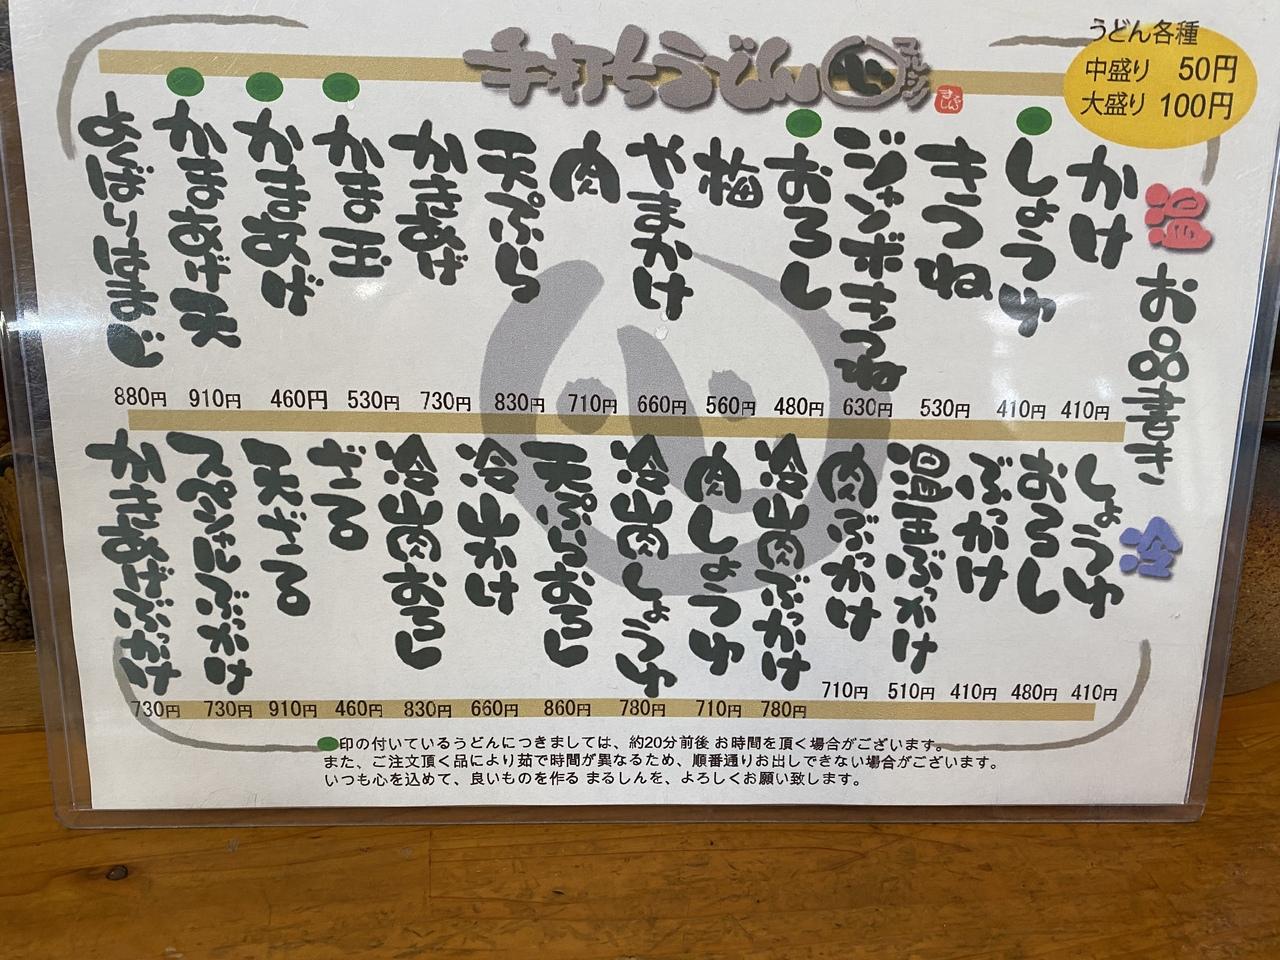 手打ちうどん
うどん各種
中盛り 50円
大盛り 100円
お品書き
温
かけ 410円
しょうゆ 410円
きつね 530円
ジャンボきつね 630円
おろし 480円
梅 560円
やまかけ 660円
肉 710円
天ぷら 830円
かきあげ 730円
かま玉 530円
かまあげ 460円
かまあげ天 910円
よくばりはまじ 880円
冷
しょうゆ 410円
おろし 480円
ぶっかけ 410円
温玉ぶっかけ 510円
肉ぶっかけ 710円
冷山肉ぶっかけ 780円
肉しょうゆ 710円
冷山肉しょうゆ 780円
天ぷらおろし 860円
冷山かけ 660円
冷山肉おろし 830円
ざる 460円
天ざる 910円
スペシャルぶっかけ 730円
かきあげぶっかけ 730円
印の付いているうどんにつきましては、約20分前後 お時間を頂く場合がございます。
また、ご注文頂く品により茹で時間が異なるため、順番通りお出しできない場合がございます。
いつも心を込めて、良いものを作る まるしんを、よろしくお願い致します。